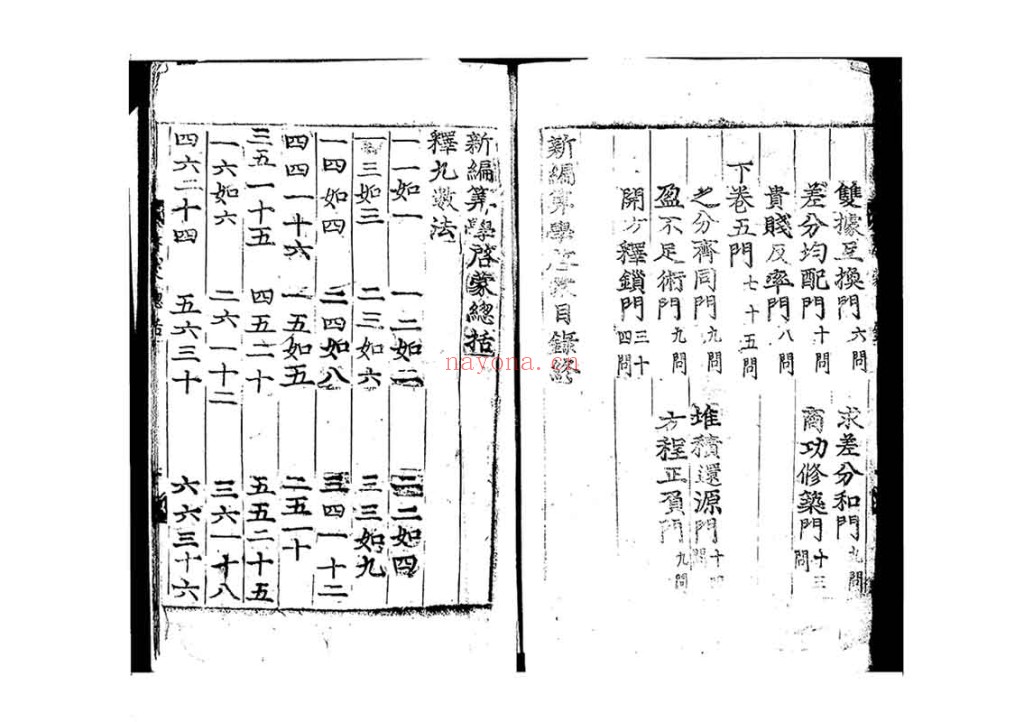 雙據互換門六問 求差分和門九問
差分均配門十問 商功修築門十三問
貴賤反率門八問
下卷五門七十五問
之分齊同門九問 堆積還源門十四問
盈不足術門九問 方程正負門九問
開方釋鎖門三十四問
新編算學啓蒙目錄終
新編算學啓蒙總括
釋九數法
一一如一 一二如二 二二如四
一三如三 二三如六 三三如九
一四如四 二四如八 三四一十二
四四一十六 一五如五 二五一十
三五一十五 四五二十 五五二十五
一六如六 二六一十二 三六一十八
四六二十四 五六三十 六六三十六
nayona.cn